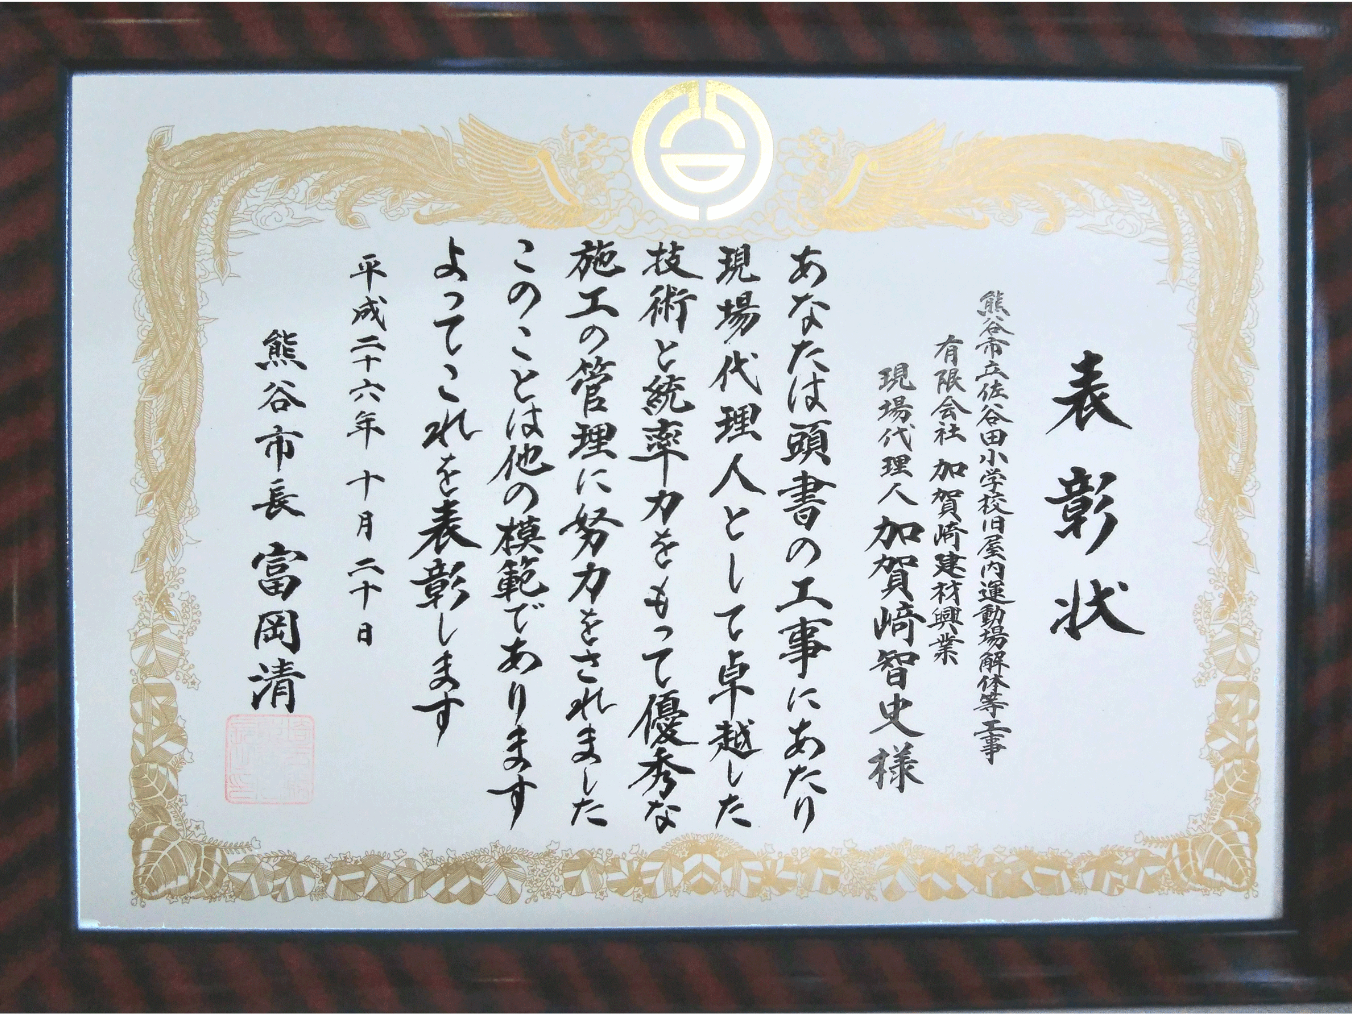 表彰状
熊谷市立佐谷田小学校旧屋内運動場解体等工事
有限会社 加賀崎建材興業
現場代理人 加賀﨑智史様
あなたは頭書の工事にあたり
現場代理人として卓越した
技術と統率力をもって優秀な
施工の管理に努力をされました
このことは他の模範であります
よってこれを表彰します
平成二十六年十月二十日
熊谷市長 富岡清